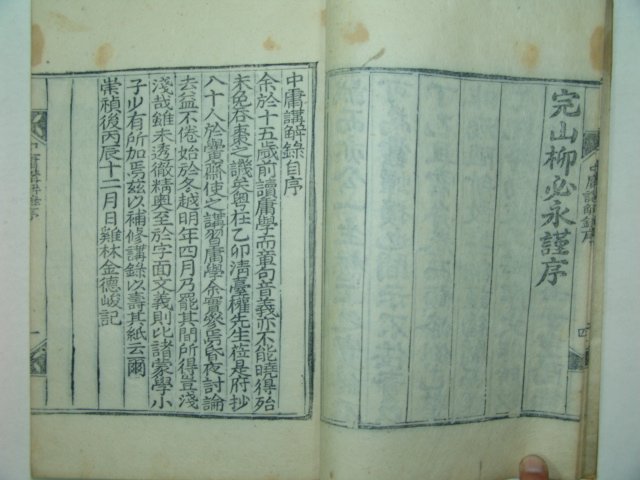 完山柳必永謹序
中庸講解錄序
四
中庸講解錄自序
余於十五歲前讀庸學而章句音義亦不能曉得殆
未免吞棗之譏矣粤在乙卯淸臺權先生莅是府抄
八十人於黌齋使之講習庸學余實參焉昏夜討論
去益不倦始於冬越明年四月乃罷其間所得豈淺
淺哉雖未透徹精奧至於字面文義則比諸蒙學小
子少有所加焉玆以補修講錄以壽其紙云爾
崇禎後丙辰十二月日雞林金德峻記
中庸講解錄序
一